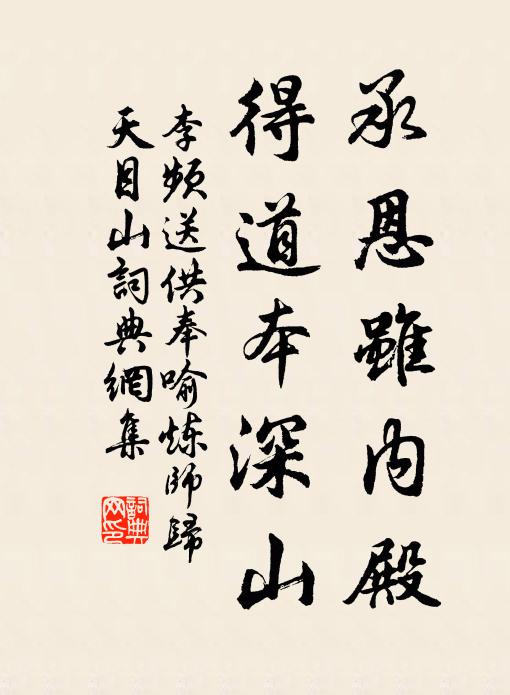 承恩雖內殿
得道本深山
李頻送供奉喻煉師歸
天目山詞典網集
詞典
网印